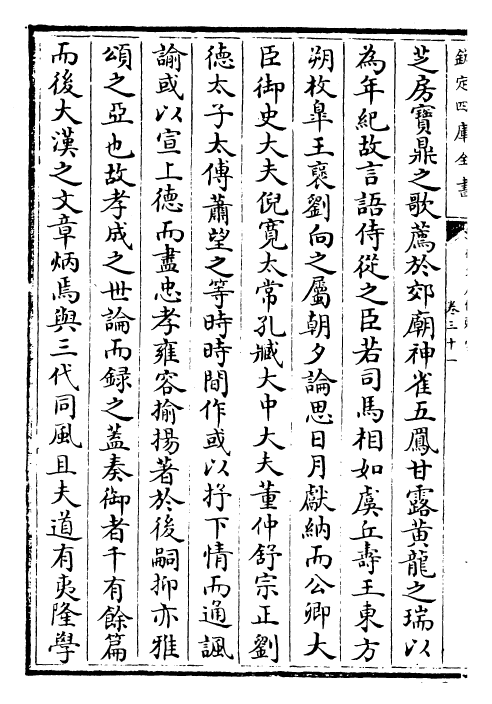 欽定四庫全書
卷三十一
芝房寶鼎之歌薦於郊廟神雀五鳳甘露黃龍之瑞以
為年紀故言語侍從之臣若司馬相如虞丘壽王東方
朔枚皐王襃劉向之屬朝夕論思日月獻納而公卿大
臣御史大夫倪寛太常孔臧大中大夫董仲舒宗正劉
德太子太傅蕭望之等時時間作或以抒下情而通諷
諭或以宣上德而盡忠孝雍容揄揚著於後嗣抑亦雅
頌之亞也故孝成之世論而録之葢奏御者千有餘篇
而後大漢之文章炳焉與三代同風且夫道有夷隆學